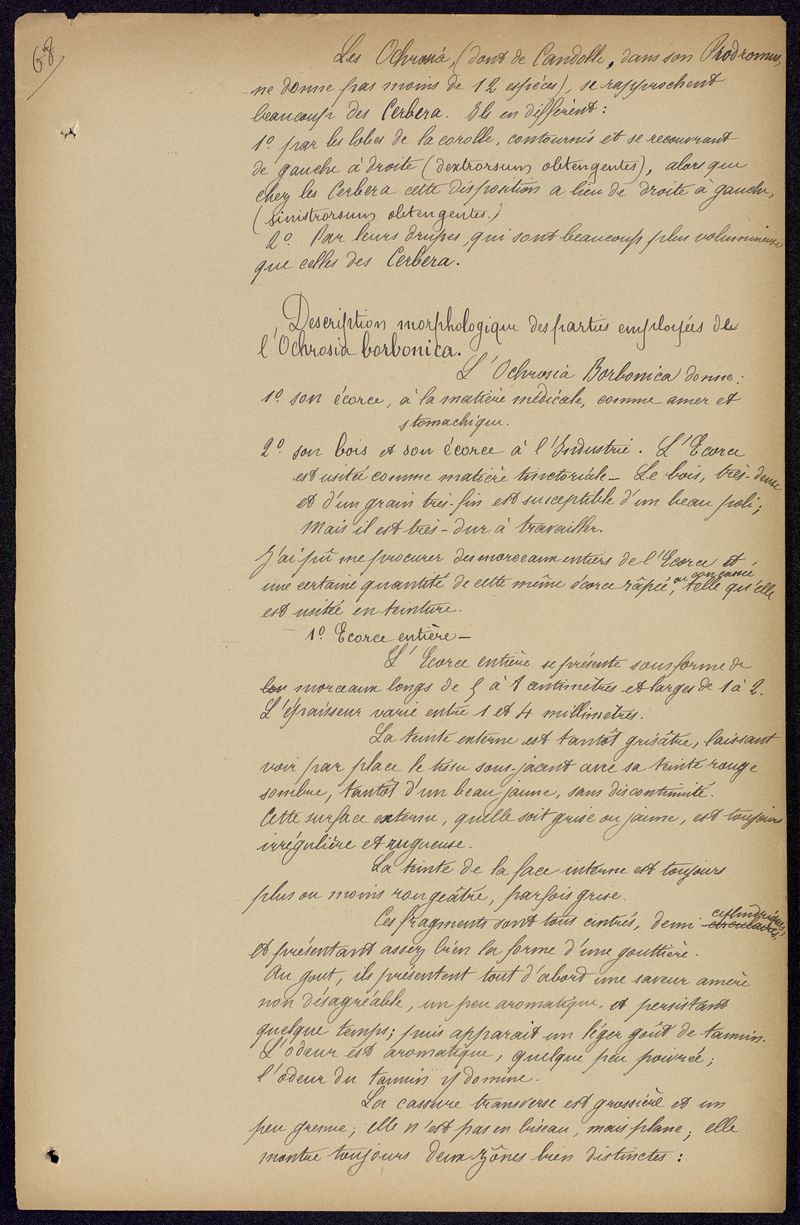 68
Les Ochrosia, (dont de Candolle, dans son Prodromus,
ne donne pas moins de 12 espèces), se rapprochent
beaucoup des Cerbera. Ils en diffèrent :
1º par les lobes de la corolle, contournés et se recouvrant
de gauche à droite (dextrorsum obtengentes), alors que
chez les Cerbera cette disposition a lieu de droite à gauche,
(sinistrorsum obtengentes.)
2º Par leurs drupes, qui sont beaucoup plus volumineuses
que celles des Cerbera.
Description morphologique des parties employées de
l'Ochrosia borbonica.
L'Ochrosia Borbonica donne :
1º son écorce, à la matière médicale, comme amer et
stomachique.
2º son bois et son écorce à l'Industrie. L'Ecorce
est usitée comme matière tinctoriale - Le bois, très-dense
et d'un grain très-fin est susceptible d'un beau poli ;
Mais il est très-dur à travailler.
J'ai pû me procurer des morceaux entiers de l'Ecorce et
une certaine quantité de cette même écorce râpée, ou concassée telle qu'elle
est usitée en teinture.
1º Ecorce entière -
L'Ecorce entière se présente sous forme de
morceaux longs de 5 à 8 centimètres et larges de 1 à 2.
L'épaisseur varie entre 1 et 4 millimètres.
La teinte externe est tantôt grisâtre, laissant
voir par place le tissu sous-jacent avec sa teinte rouge
sombre, tantôt d'un beau jaune, sans discontinuité.
Cette surface externe, quelle soit grise ou jaune, est toujours
irrégulière et rugueuse.
La teinte de la face interne est toujours
plus ou moins rougeâtre, parfois grise.
Ces fragments sont tous cintrés, demi-circulaires, cylindriques,
et présentant assez bien la forme d'une gouttière.
Au gout, ils présentent tout d'abord une saveur amère
non désagréable, un peu aromatique, et persistant
quelque temps ; puis apparait un léger goût de tannin.
L'odeur est aromatique, quelque peu poivrée ;
l'odeur du tannin y domine.
La cassure transverse est grossière et un
peu grenue ; elle n'est pas en biseau, mais plane ; elle
montre toujours deux zônes bien distinctes :